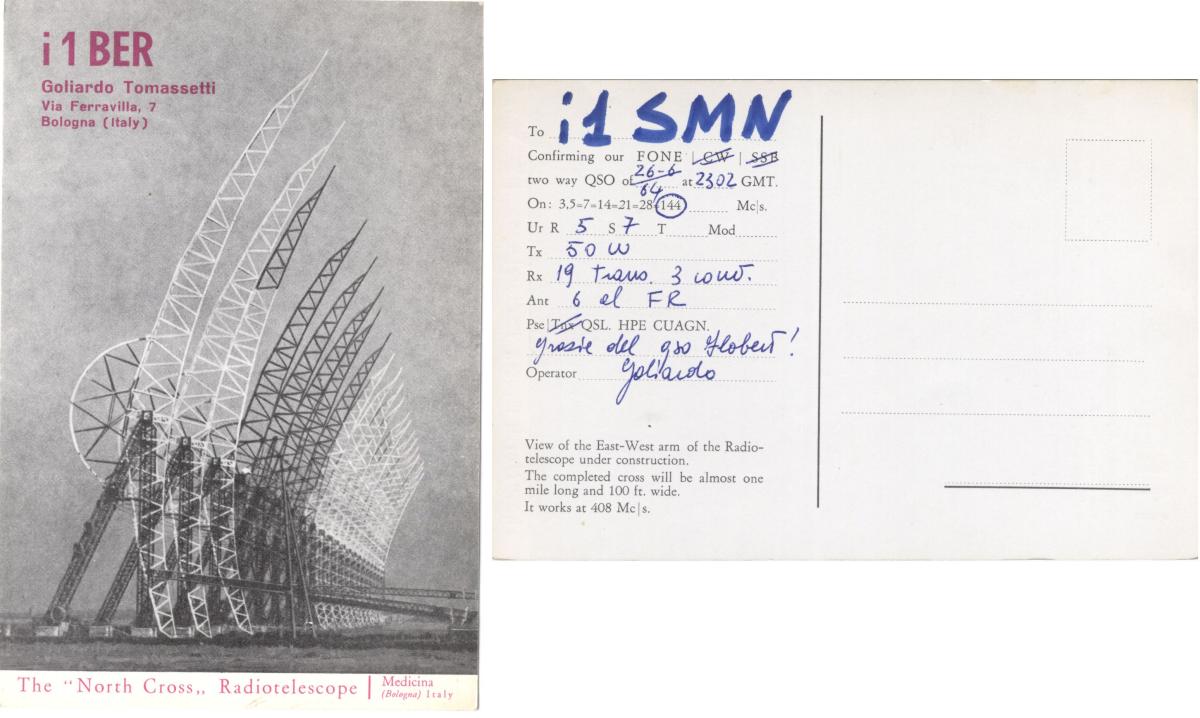 i 1 BER
Goliardo Tomassetti
Via Ferravilla, 7
Bologna (Italy)
The "North Cross„ Radiotelescope | Medicina
(Bologna) Italy
To i1 SMN
Confirming our FONE | CW | SSB
two way QSO of 26-6/64 at 2302 GMT.
On: 3,5=7=14=21=28=144 Mc|s.
Ur R 5 S 7 T Mod
Tx 50 W
Rx 19 trans. 3 conv.
Ant 6 el FR
Pse|Tnx QSL. HPE CUAGN.
grazie del qso !
Operator Goliardo
View of the East-West arm of the Radio-
telescope under construction.
The completed cross will be almost one
mile long and 100 ft. wide.
It works at 408 Mc|s.